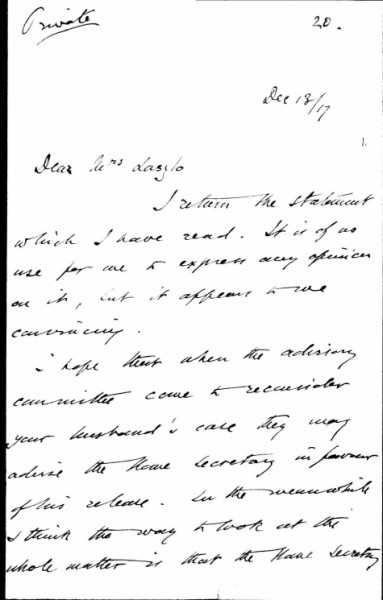 Private
20.
Dec 13/17
Dear Mrs Laszlo
I return the statement
which I have read. It is of no
use for me to express any opinion
on it, but it appears to me
convincing.
I hope that when the advisory
committee come to reconsider
your husband's case they may
advise the Home Secretary in favour
of his release. In the meanwhile
I think the way to look at the
whole matter is that the Home Secretary